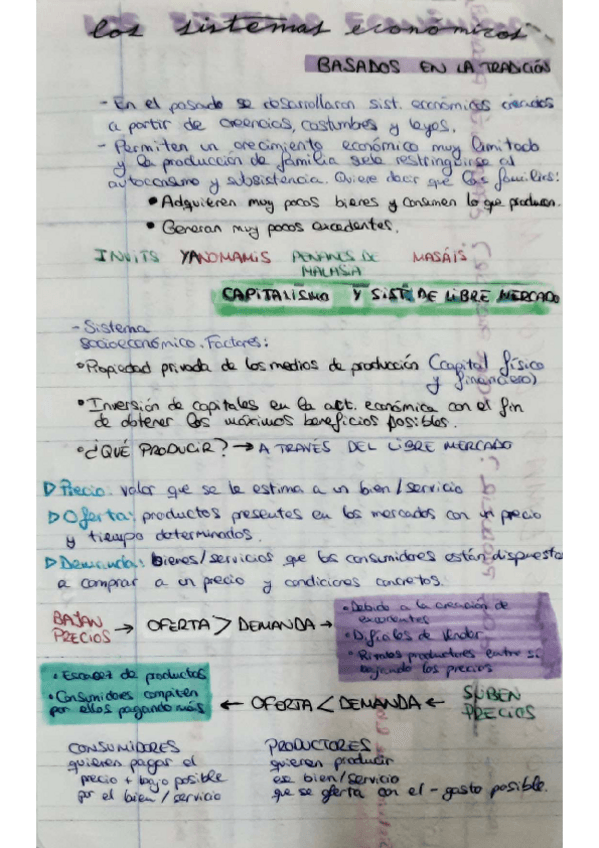 los sistemas económicos
BASADOS EN LA TRADICIÓN
- En el pasado se desarrollaron sist. económicos creados
a partir de creencias, costumbres y leyes.
- Permiten un crecimiento económico muy limitado
y la producción de familia suele restringirse al
autoconsumo y subsistencia. Quiere decir que las familias:
• Adquieren muy pocos bienes y consumen lo que producen.
• Generan muy pocos excedentes.
INUITS YANOMAMIS PENANES DE MASÁIS.
MALASIA
CAPITALISMO Y SIST. DE LIBRE MERCADO
- Sistema
socioeconómico. Factores:
• Propiedad privada de los medios de producción (capital físico
y financiero)
• Inversión de capitales en la act. económica con el fin
de obtener los máximos beneficios posibles.
• ¿QUÉ PRODUCIR? → A TRAVÉS DEL LIBRE MERCADO
▷ Precio: valor que se le estima a un bien/servicio
▷ Oferta: productos presentes en los mercados con un precio
y tiempo determinados.
▷ Demanda: bienes/servicios que los consumidores están dispuestos
a comprar a un precio y condiciones concretos.
BAJAN
PRECIOS → OFERTA > DEMANDA →
• Debido a la creación de
excedentes
• Difíciles de vender
• Rivales productores entre sí
bajando los precios
• Escasez de productos
• Consumidores compiten
por ellos pagando más
← OFERTA < DEMANDA ← SUBEN
PRECIOS
CONSUMIDORES
quieren pagar el
precio + bajo posible
por el bien / servicio
PRODUCTORES
quieren producir
ese bien/servicio
que se oferta con el - gasto posible.